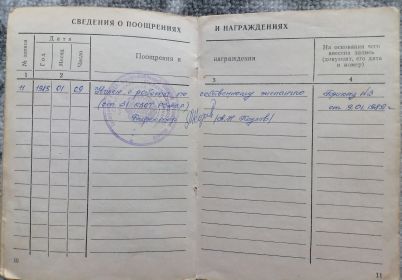 СВЕДЕНИЯ О ПООЩРЕНИЯХ И НАГРАЖДЕНИЯХ
№ записи
Дата
Год
Месяц
Число
Поощрения и награждения
На основании чего внесена запись (документ, его дата и номер)
1 2 3 4
11 1985 01 09 с работы по собственному желанию
(ст 31 КЗОТ РСФСР)
от 9.01.1985г.
Директор
10
11